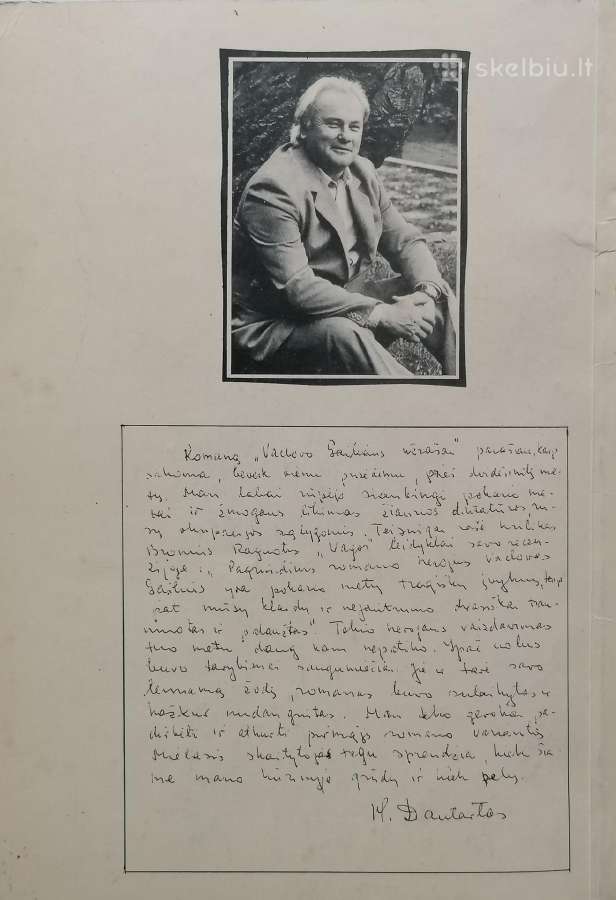 skelbiu.lt
Romaną „Vaclovo Gailiaus užrašai" parašiau, kaip
sakoma, beveik vienu prisėdimu, prieš dvidešimtį me-
tų. Man labai rūpėjo sunkūs pokario me-
tai ir žmogaus likimas žiaurios diktatūros, ru-
sų okupacijos sąlygomis. Teisingai rašė kritikas
Bronius Raguotis „Vagos" leidyklai savo recen-
zijoje: „Pagrindinis romano herojus Vaclovas
Gailius yra pokario metų tragiškų įvykių, taip
pat mūsų klaidų ir nejautrumo drastiškai trau-
muotas ir „palaužtas". Tokio herojaus vaizdavimas
tuo metu daug kam nepatiko. Ypač uolus
buvo tarybiniai saugumiečiai. Jie ir tarė savo
lemiamą žodį, romanas buvo sulaikytas ir
kažkur nudangintas. Man teko gerokai pa-
dirbėti ir atkurti pirmąjį romano variantą.
Mielasis skaitytojas tegu sprendžia, kiek šia-
me mano kūrinyje grūdų ir kiek pelų.
M. Dautartas